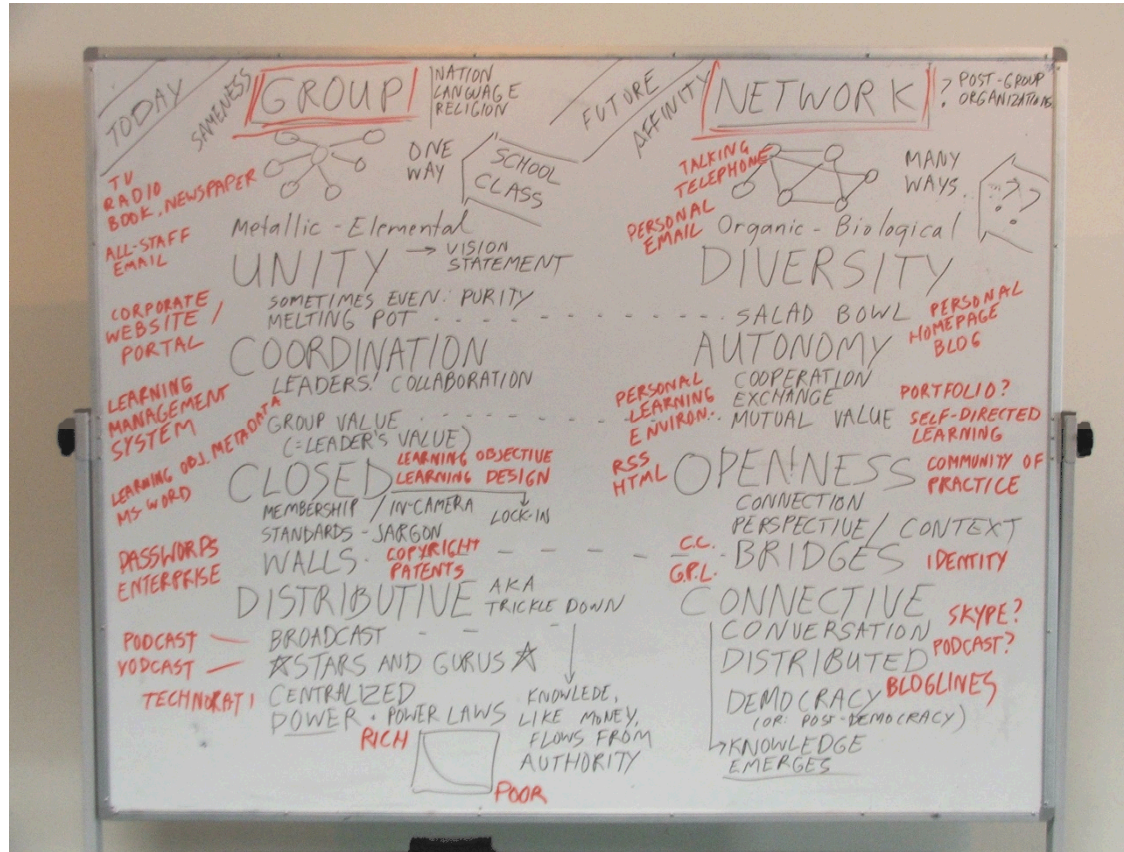 TODAY
SAMENESS
GROUP
NATION
LANGUAGE
RELIGION
ONE
WAY
SCHOOL
CLASS
TV
RADIO
BOOK, NEWSPAPER
ALL-STAFF
EMAIL
Metallic - Elemental
UNITY → VISION
STATEMENT
SOMETIMES EVEN: PURITY
MELTING POT
CORPORATE
WEBSITE /
PORTAL
COORDINATION
LEADERS! COLLABORATION
LEARNING
MANAGEMENT
SYSTEM
GROUP VALUE
(=LEADER'S VALUE)
LEARNING OBJ. METADATA
MS-WORD
CLOSED
LEARNING OBJECTIVE
LEARNING DESIGN
LOCK-IN
MEMBERSHIP / IN-CAMERA
STANDARDS - JARGON
WALLS
COPYRIGHT
PATENTS
PASSWORDS
ENTERPRISE
DISTRIBUTIVE
AKA
TRICKLE DOWN
PODCAST
VODCAST
TECHNORATI
BROADCAST
☆STARS AND GURUS☆
CENTRALIZED
POWER · POWER LAWS
RICH
POOR
KNOWLEDE,
LIKE MONEY,
FLOWS FROM
AUTHORITY
FUTURE
AFFINITY
NETWORK
? POST-GROUP
ORGANIZATIONS
TALKING
TELEPHONE
MANY
WAYS
? ?
?
PERSONAL
EMAIL
Organic - Biological
DIVERSITY
SALAD BOWL
PERSONAL
HOMEPAGE
BLOG
AUTONOMY
COOPERATION
EXCHANGE
MUTUAL VALUE
PERSONAL
LEARNING
ENVIRON.
PORTFOLIO?
SELF-DIRECTED
LEARNING
RSS
HTML
OPENNESS
COMMUNITY OF
PRACTICE
CONNECTION
PERSPECTIVE / CONTEXT
C.C.
G.P.L.
BRIDGES
IDENTITY
CONNECTIVE
CONVERSATION
DISTRIBUTED
SKYPE?
PODCAST?
BLOGLINES
DEMOCRACY
(OR: POST-DEMOCRACY)
KNOWLEDGE
EMERGES